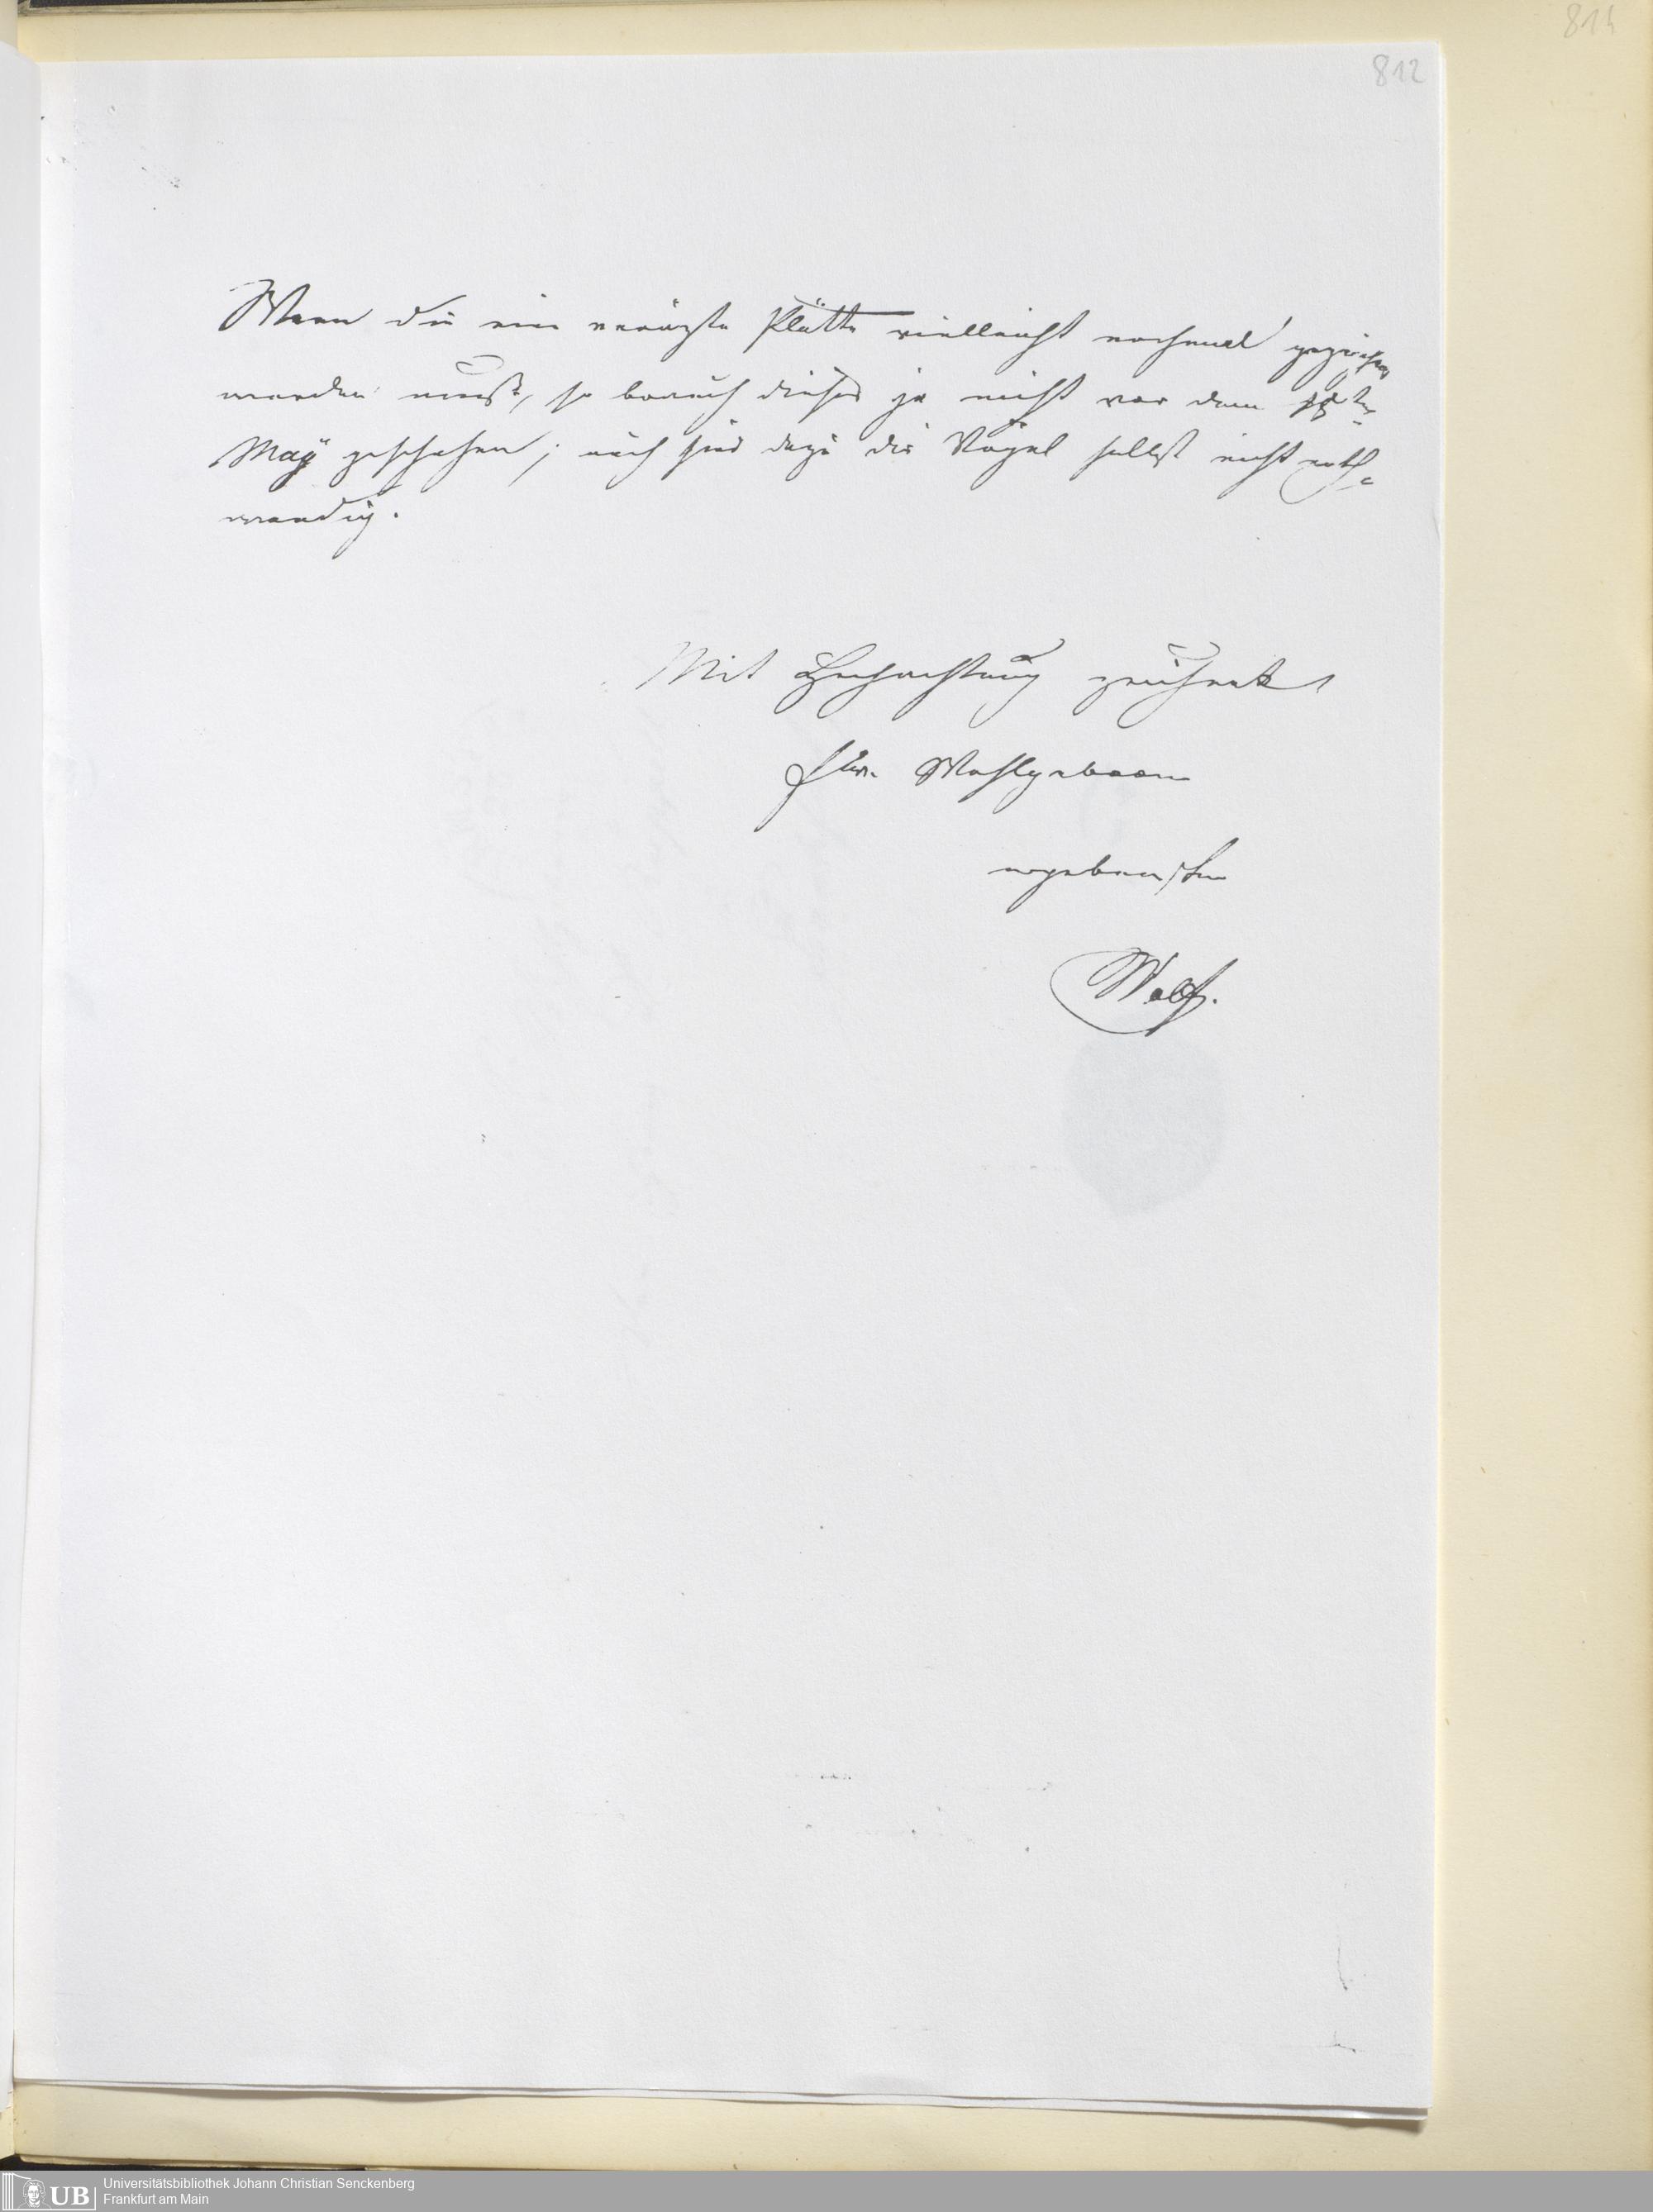 814
812
Wenn die eine Platte vielleicht nochmal gezeichnet
werden muß, so brauch dieses ja nicht vor dem
May geschehen; auch sind dazu die Vögel selbst nicht noth=
wendig.
Mit Hochachtung zeichnet
Euer Wohlgeboren
ergebenster
Wolf.
UB
Universitätsbibliothek Johann Christian Senckenberg
Frankfurt am Main